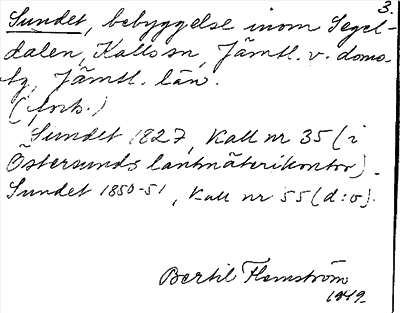 3.
Sundet, bebyggelse inom Segel-
dalen, Kalls sn, Jämtl. v. doms-
ag, Jämtl. län.
(forts.)
Sundet 1827, Kall nr 35 (i
Östersunds lantmäterikontor).
Sundet 1850-51, Kall nr 55 (d:o).
Bertil Flemström
1949.